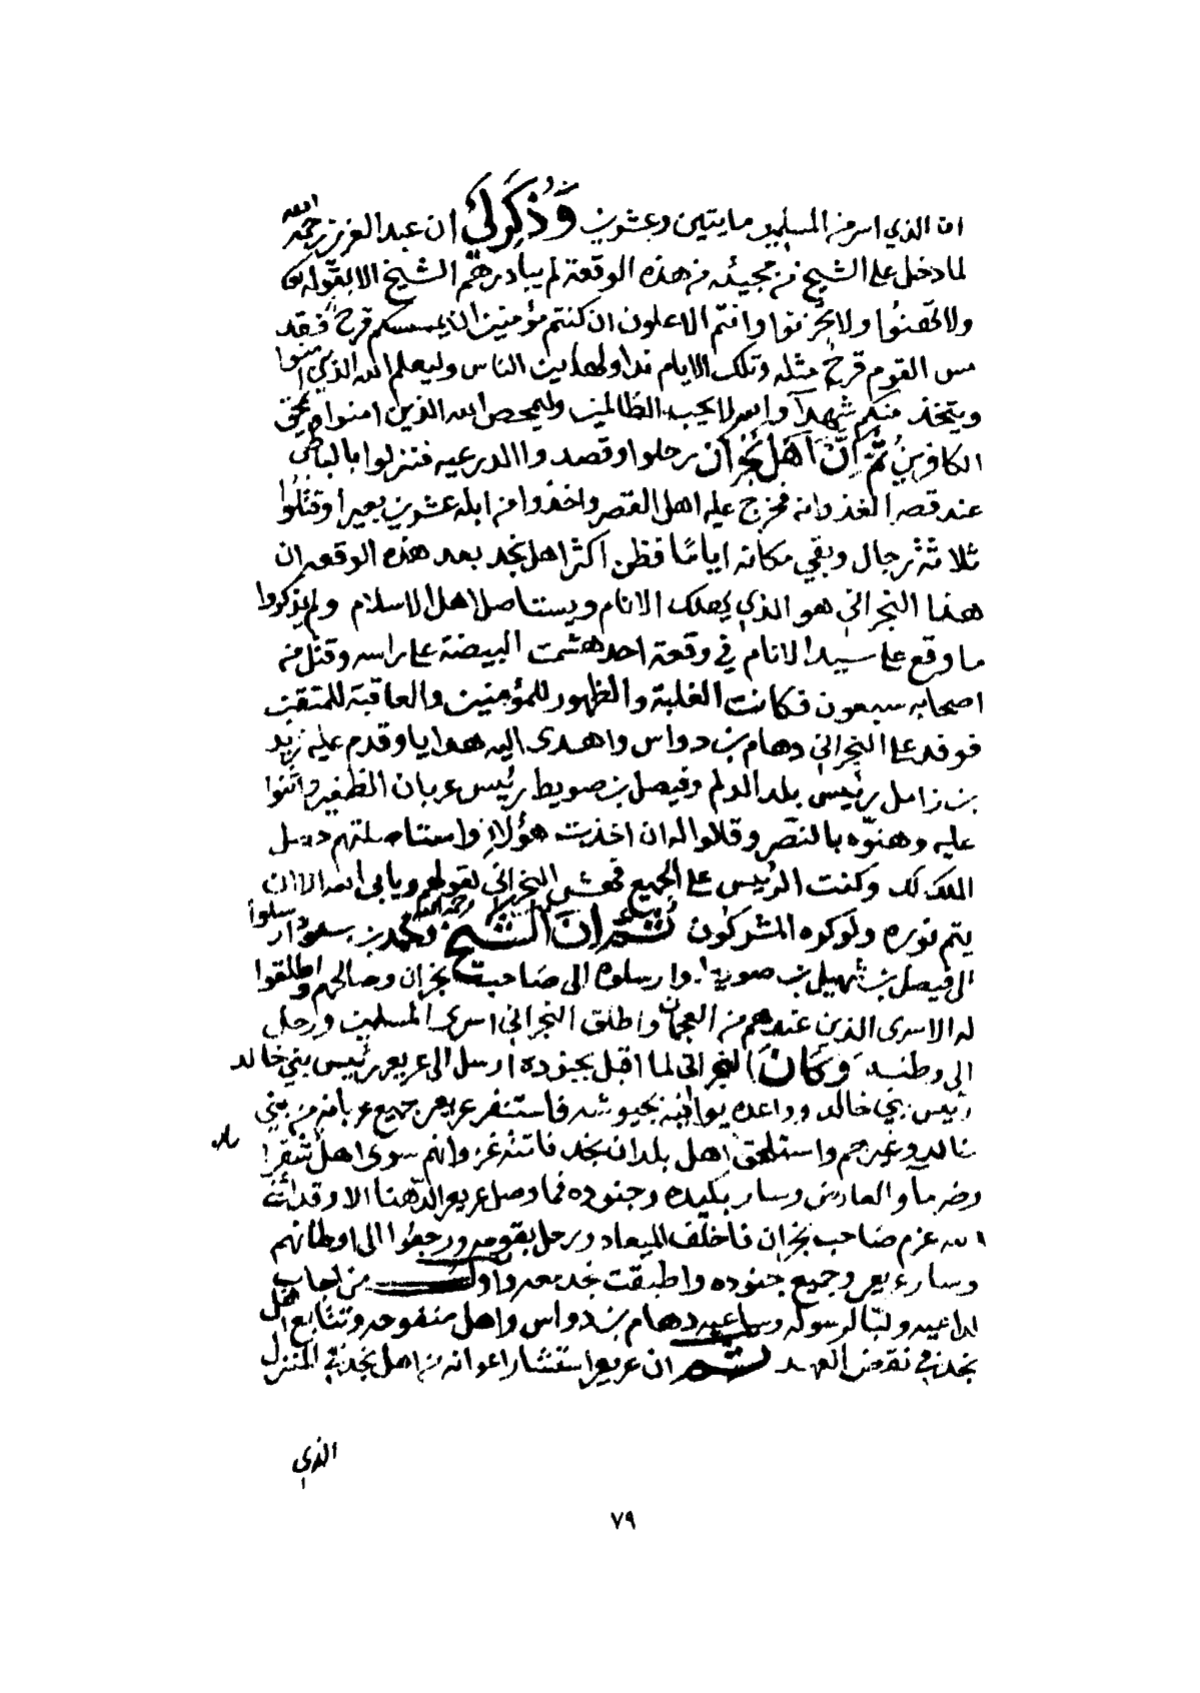 ان الذي اسر من المسلمين مايتين وعشرين وَذُكِرَ لي ان عبد العزيز رحمه الله
لما دخل على الشيخ من مجيئه من هذه الوقعة لم يبادرهم الشيخ الا بقوله
ولا تهنوا ولا تحزنوا وانتم الاعلون ان كنتم مؤمنين ان يمسسكم قرح فقد
مس القوم قرح مثله وتلك الايام نداولها بين الناس وليعلم الله الذين امنوا
ويتخذ منكم شهدآ والله لا يحب الظالمين وليمحص الله الذين امنوا ويمحق
الكافرين ثُمَّ اِنَّ اَهْلَ نَجْرَان رحلوا وقصدوا الدرعيه فنزلوا بالباطن
عند قصر الغذوانه فخرج عليه اهل القصر واخذوا من ابله عشرين بعيرا وقتلوا
ثلاثة رجال وبقي مكانه اياما فظن اكثر اهل نجد بعد هذه الوقعه ان
هذا النجراني هو الذي يهلك الانام ويستاصل اهل الاسلام ولم يذكروا
ما وقع على سيد الانام في وقعة احد هشمت البيضة على راسه وقتل من
اصحابه سبعون فكانت الغلبة والظهور للمؤمنين والعاقبة للمتقين
فوفد على النجراني دهام بن دواس واهدى اليه هدايا وقدم عليه زيد
بن زامل رئيس بلد الدلم وفيصل بن صويط رئيس عربان الظفير واثنوا
عليه وهنوّه بالنصر وقالوا له ان اخذت هؤلاء واستاصلتهم دخل
الملك لك وكنت الرئيس على الجميع فهش النجراني لقولهم ويابى الله الا ان
يتم نوره ولو كره المشركون ثُمَّ اِنَّ الشيخ رحمه الله محمد بن سعود ارسلوا
الى فيصل بن شهيل بن صويط وارسلوه الى صاحب نجران وصالحهم واطلقوا
له الاسرى الذين عندهم من العجمان واطلق النجراني اسرى المسلمين ورحل
الى وطنه وَكَانَ النجراني لما اقبل بجنوده ارسل الى عريعر رئيس بني خالد
رئيس بني خالد وواعده يوافيه بجيوشه فاستنفر عريعر جميع عربانه من بني
خالد وغيرهم واستلحق اهل بلدان نجد فاتته غزوانهم سوى اهل شقرا
وضرمآ والعارض وسار بكيده وجنوده فما وصل عريعر الدهنا الا وقد اثنى
الله عزم صاحب نجران فاخلف الميعاد ورحل بقومه ورجعوا الى اوطانهم
وسار عريعر وجميع جنوده واطبقت نجد معه واول من اجاب
لداعيه ولبّا لرسوله وساعيه دهام بن دواس واهل منفوحه وتتابع اهل
نجد في نقض العهد ثم ان عريعر استشار اعوانه من اهل نجد في المنزل
الذي
٧٩